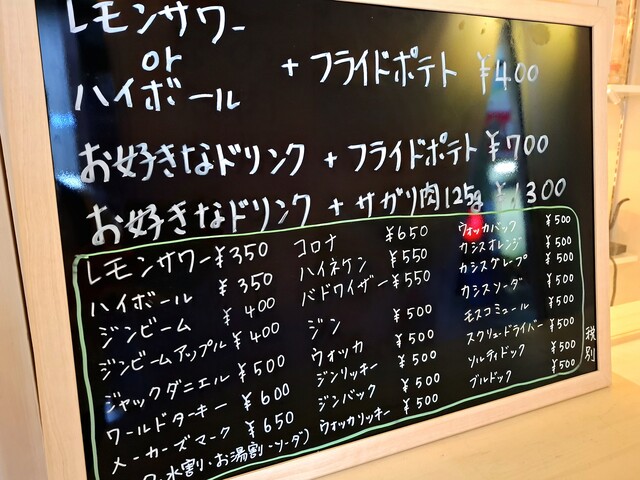 レモンサワー
or
ハイボール
+ フライドポテト ¥400
お好きなドリンク + フライドポテト ¥700
お好きなドリンク + サガリ肉125g ¥1300
レモンサワー ¥350
ハイボール ¥350
ジンビーム ¥400
ジンビームアップル ¥400
ジャックダニエル ¥500
ワールドターキー ¥600
メーカーズマーク ¥650
水割・お湯割・ソーダ)
コロナ ¥650
ハイネケン ¥550
バドワイザー ¥550
ジン ¥500
ウォッカ ¥500
ジンリッキー ¥500
ジンバック ¥500
ウォッカリッキー ¥500
ウォッカバック ¥500
カシスオレンジ ¥500
カシスグレープ ¥500
カシスソーダ ¥500
モスコミュール ¥500
スクリュードライバー ¥500
ソルティドック ¥500
ブルドック ¥500
税別